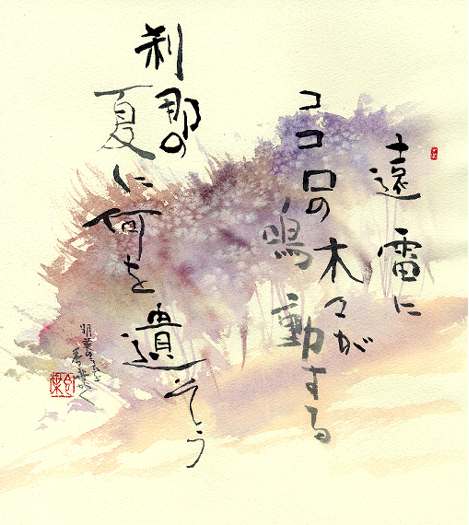 遠雷に
ココロの木々が
鳴動する
刹那の
夏に何を
遺そう